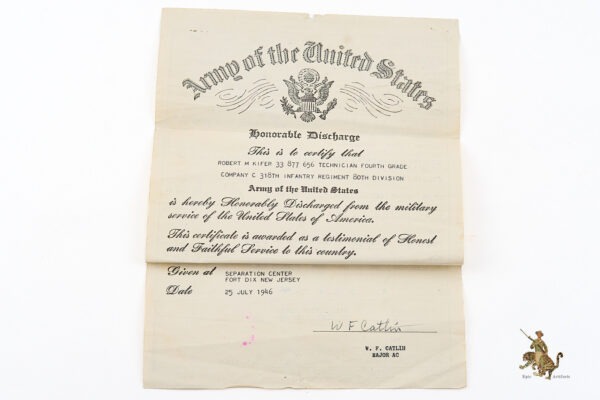 Army of the United States
Honorable Discharge
This is to certify that
ROBERT M KIFER 33 877 656 TECHNICIAN FOURTH GRADE
COMPANY C 318TH INFANTRY REGIMENT 80TH DIVISION
Army of the United States
is hereby Honorably Discharged from the military
service of the United States of America.
This certificate is awarded as a testimonial of Honest
and Faithful Service to this country.
Given at SEPARATION CENTER
FORT DIX NEW JERSEY
Date 25 JULY 1946
W F Catlin
W. F. CATLIN
MAJOR AC
Epic Artifacts